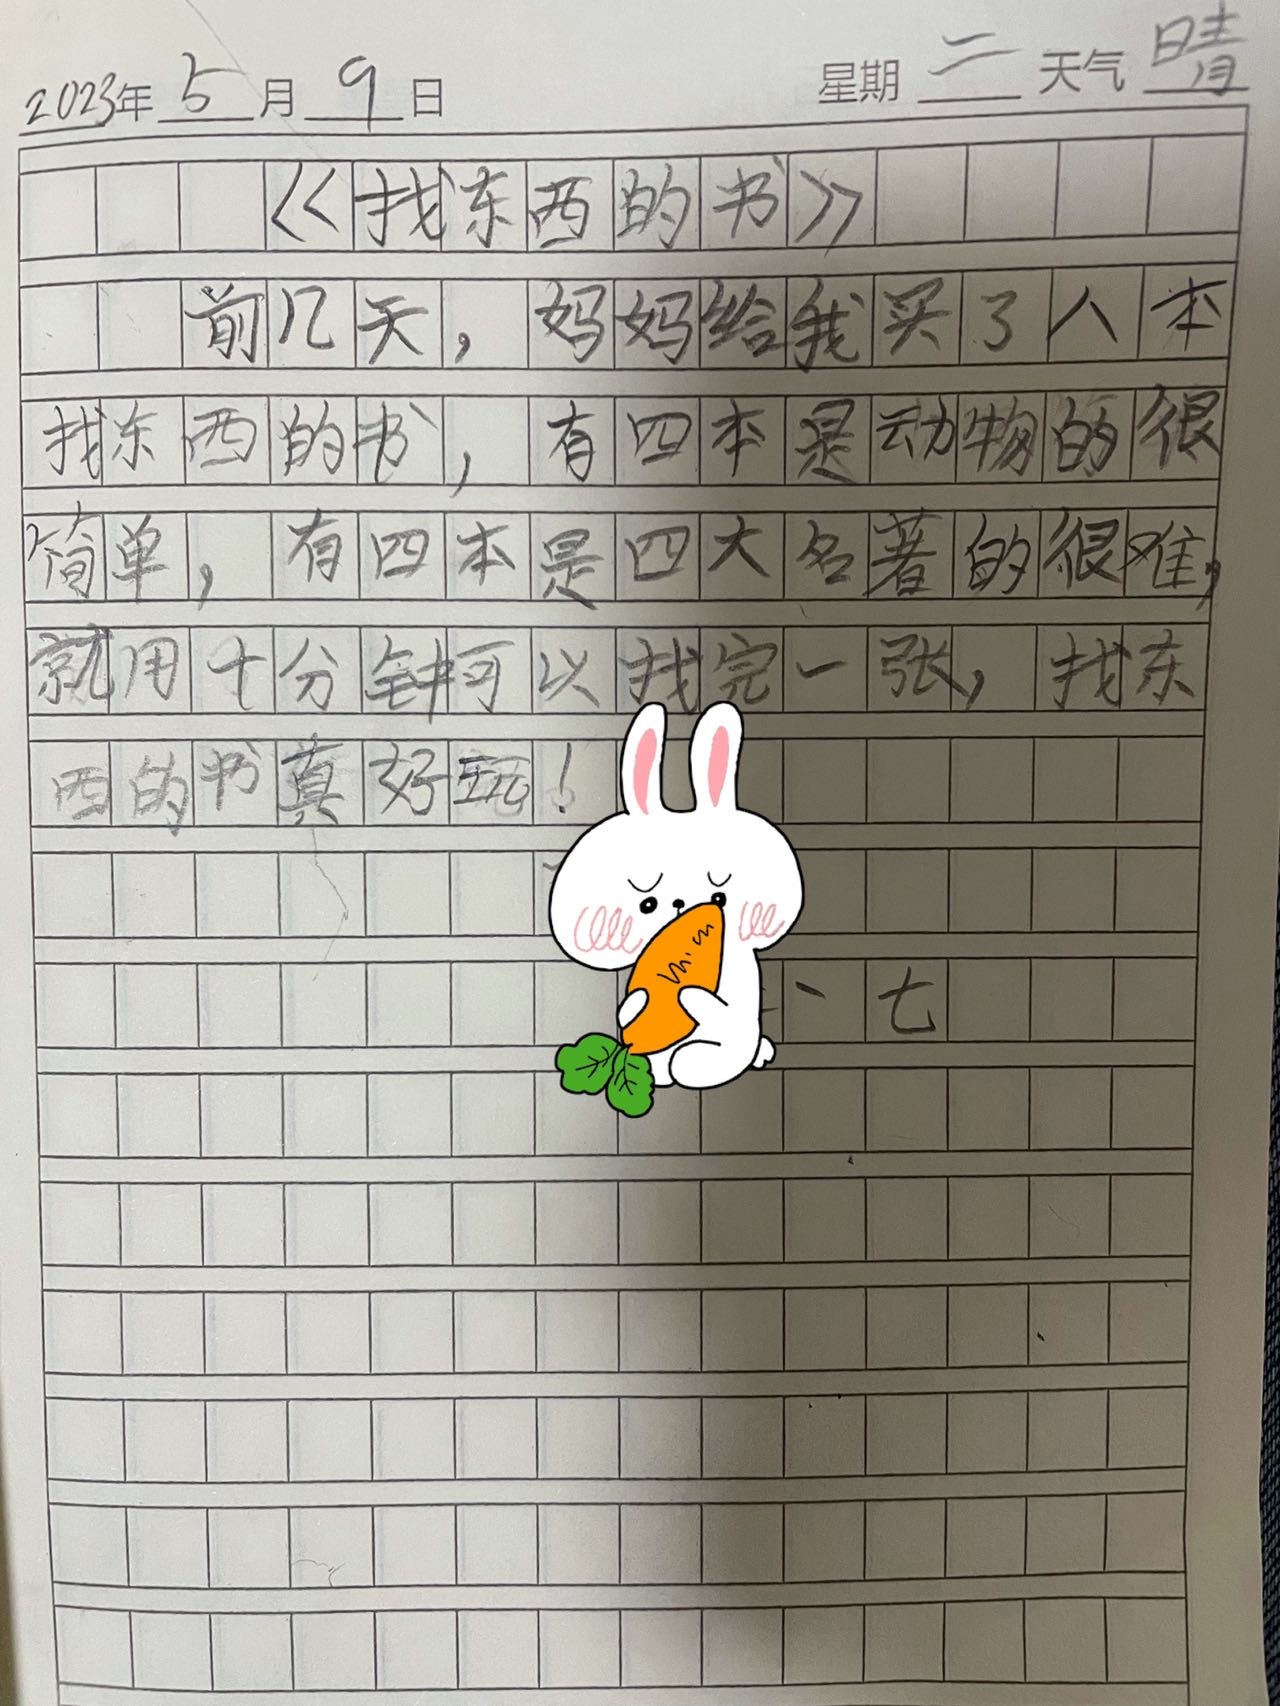 2023年 5 月 9 日 星期 二 天气 晴
《找东西的书》
前几天，妈妈给我买了八本
找东西的书，有四本是动物的很
简单，有四本是四大名著的很难，
就用十分钟可以找完一张，找东
西的书真好玩！
、七